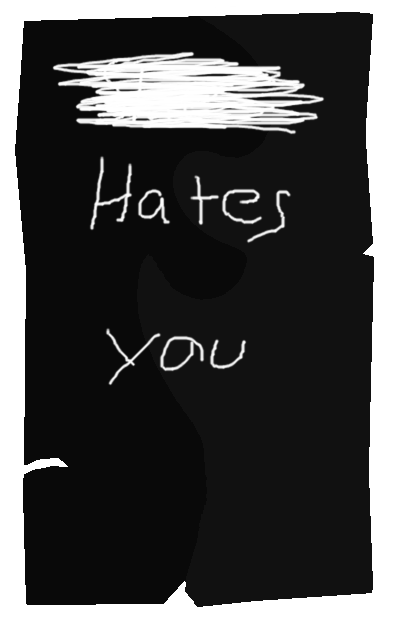 Hates
you